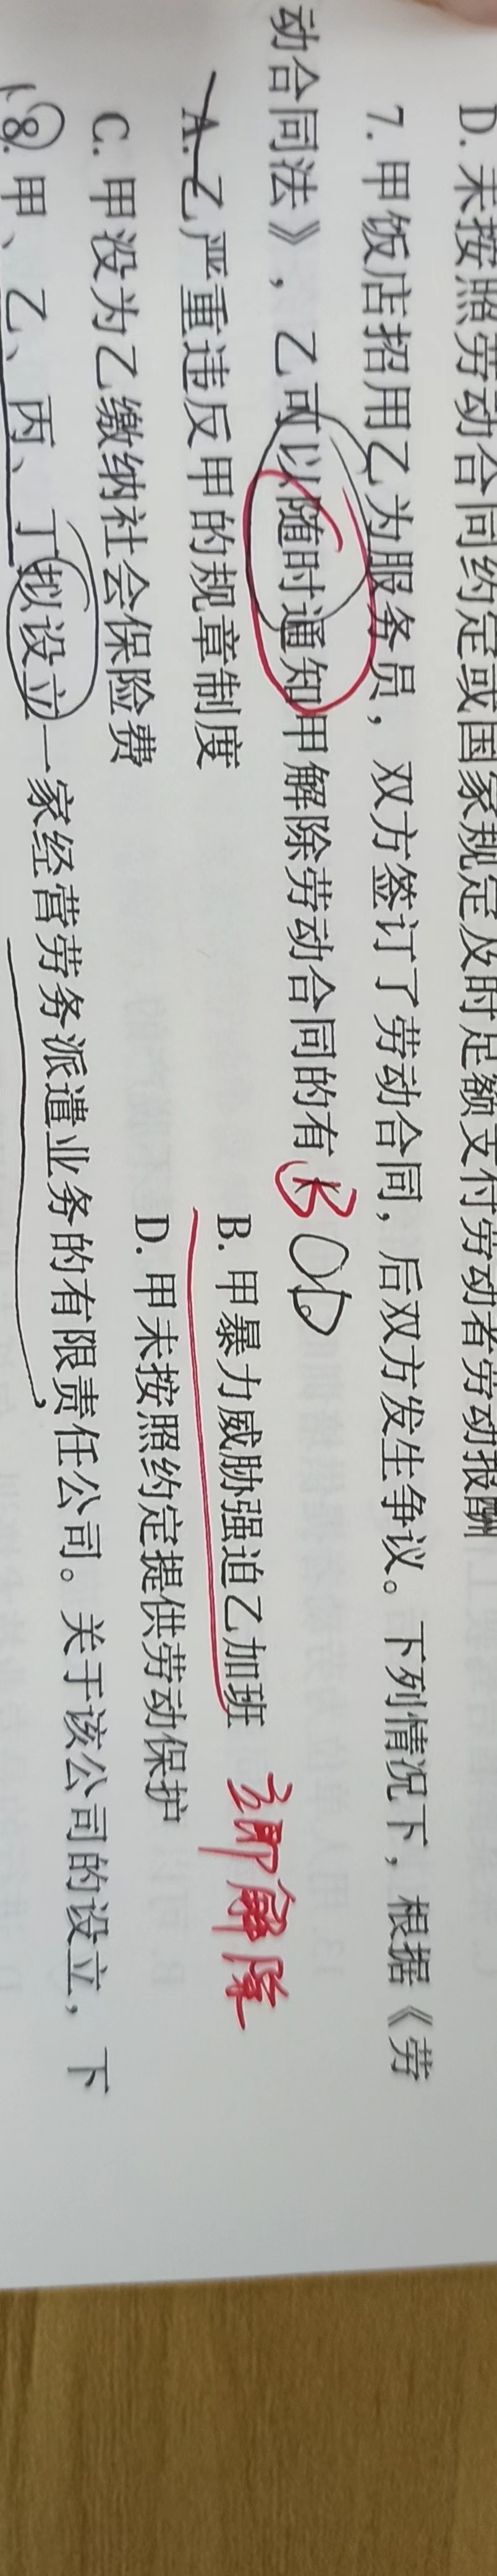 D. 未按照劳动合同约定或国家规定及时足额支付劳动者劳动报酬
7. 甲饭店招用乙为服务员，双方签订了劳动合同，后双方发生争议。下列情况下，根据《劳
动合同法》，乙可以随时通知甲解除劳动合同的有 B CD
A. 乙严重违反甲的规章制度 B. 甲暴力威胁强迫乙加班 立即解除
C. 甲没为乙缴纳社会保险费 D. 甲未按照约定提供劳动保护
8. 甲、乙、丙、丁拟设立一家经营劳务派遣业务的有限责任公司。关于该公司的设立，下